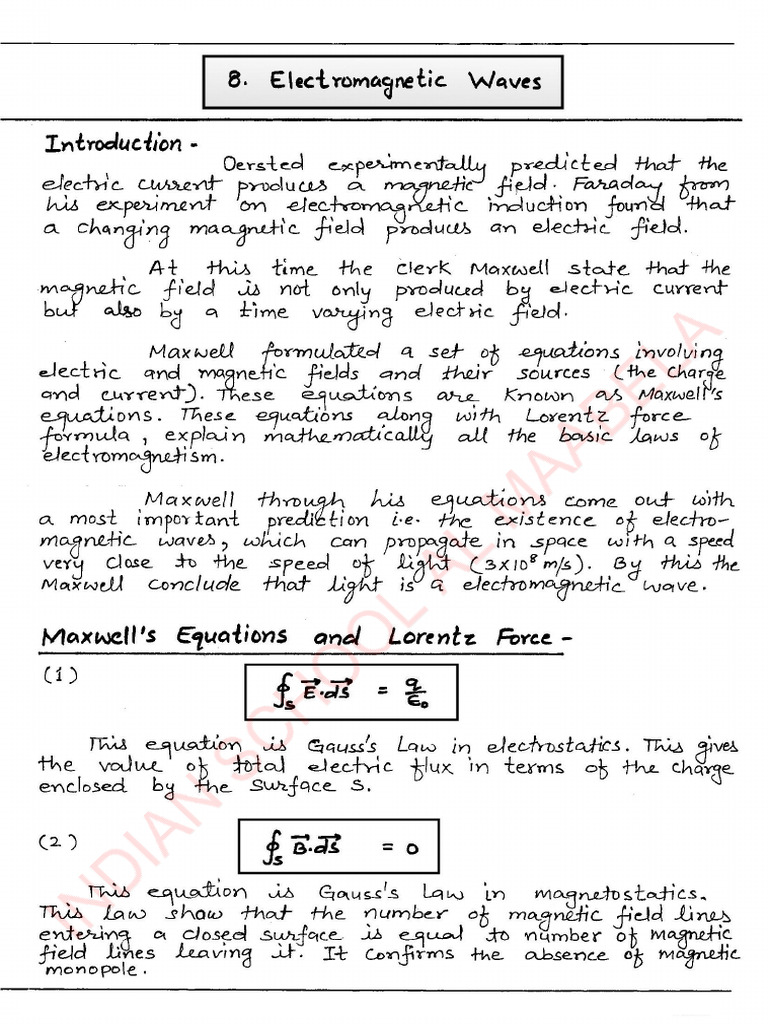 8. Electromagnetic Waves
Introduction -
Oersted experimentally predicted that the
electric current produces a magnetic field. Faraday from
his experiment on electromagnetic induction found that
a changing maagnetic field produces an electric field.
At this time the Clerk Maxwell state that the
magnetic field is not only produced by electric current
but also by a time varying electric field.
Maxwell formulated a set of equations involving
electric and magnetic fields and their sources (the charge
and current). These equations are known as Maxwell's
equations. These equations along with Lorentz force
formula, explain mathematically all the basic laws of
electromagnetism.
Maxwell through his equations come out with
a most important prediction i.e. the existence of electro-
magnetic waves, which can propagate in space with a speed
very close to the speed of light (3×10⁸ m/s). By this the
Maxwell conclude that light is a electromagnetic wave.
Maxwell's Equations and Lorentz Force -
(1) ∮ₛ E⃗·ds⃗ = q/ε₀
This equation is Gauss's Law in electrostatics. This gives
the value of total electric flux in terms of the charge
enclosed by the surface S.
(2) ∮ₛ B⃗·ds⃗ = 0
This equation is Gauss's Law in magnetostatics.
This law show that the number of magnetic field lines
entering a closed surface is equal to number of magnetic
field lines leaving it. It confirms the absence of magnetic
monopole.
INDIAN SCHOOL AL MAABELA